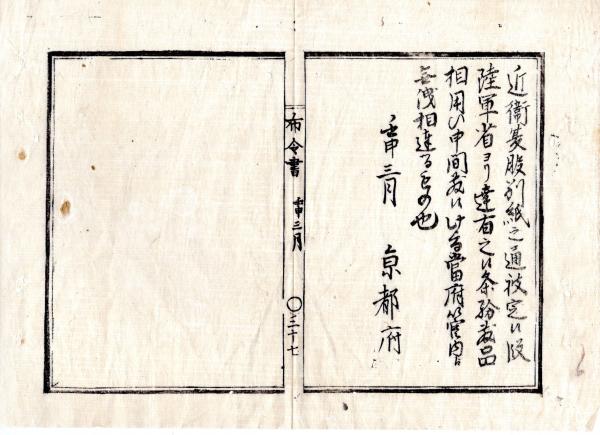 近衛夏服別紙之通被定候段
陸軍省ヨリ達有之候条紛敷品
相用ひ申間敷候此旨當府管内
無洩相達るもの也
壬申三月　京都府
布令書　壬申三月　〇三十七